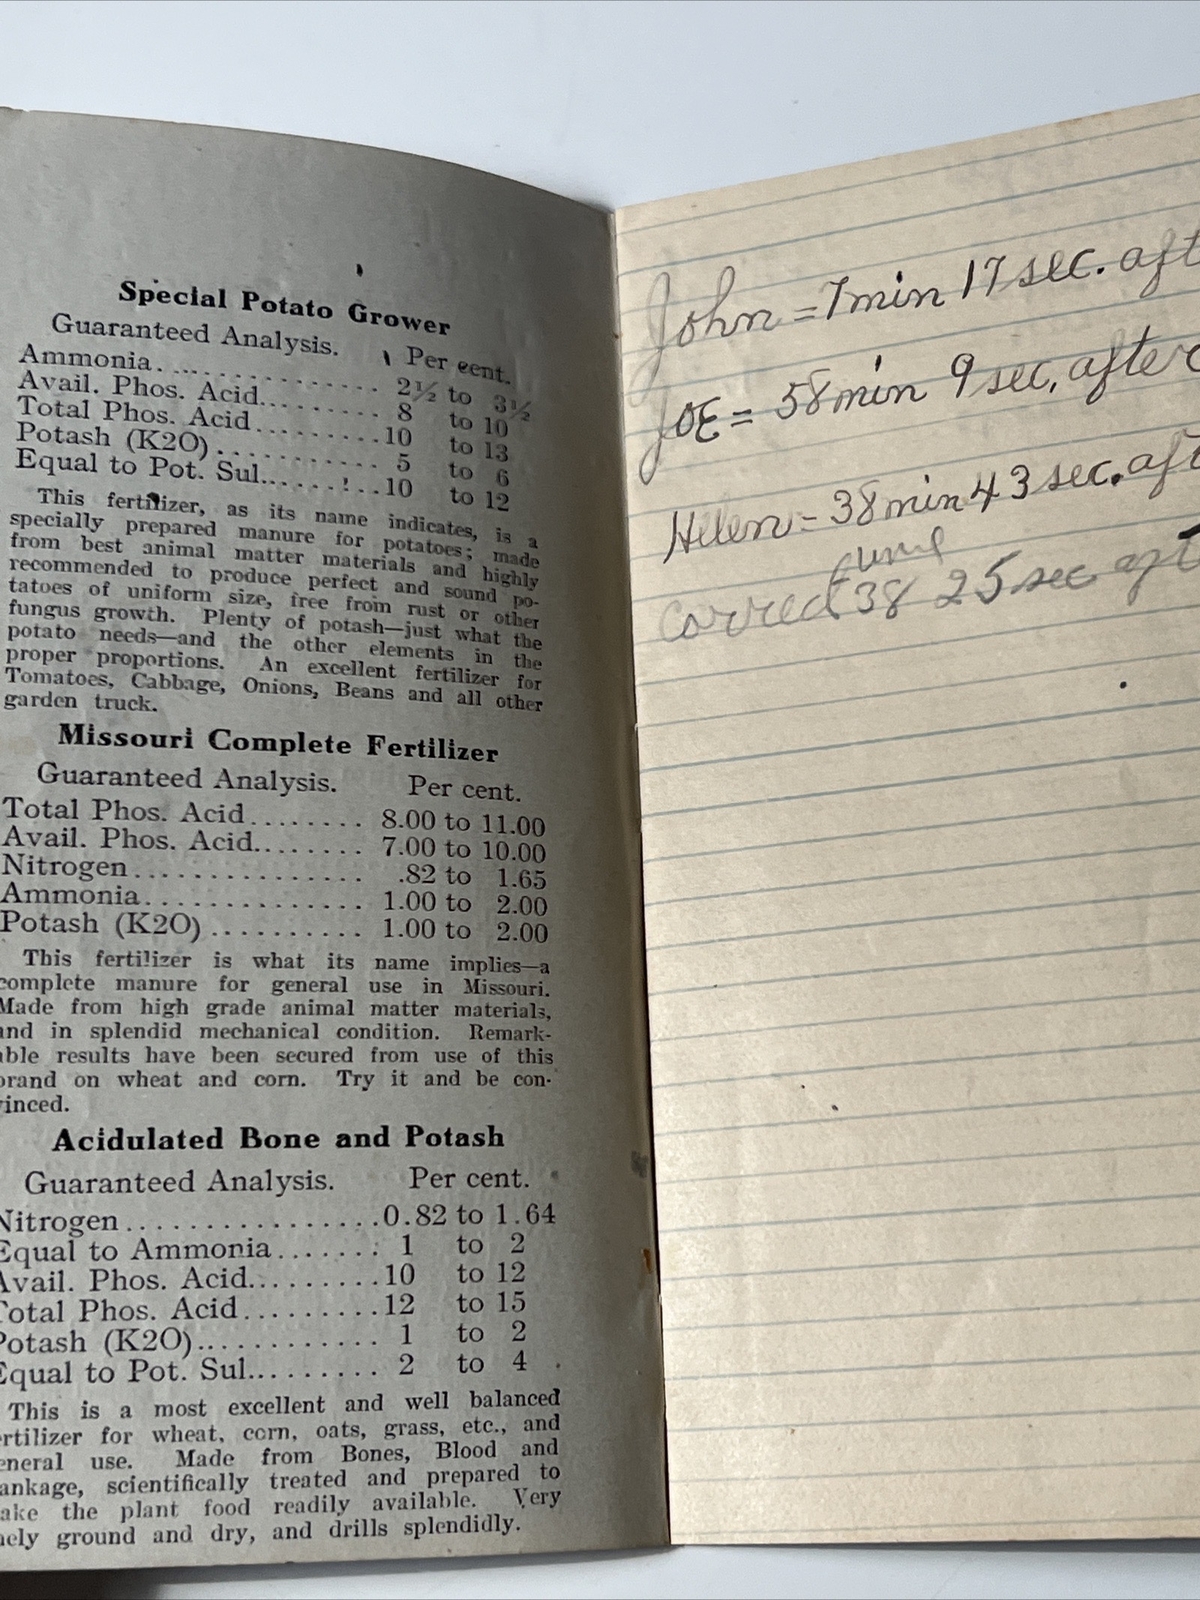 Special Potato Grower
Guaranteed Analysis. Per cent.
Ammonia. ... 2½ to 3½
Avail. Phos. Acid. ... 8 to 10
Total Phos. Acid ... 10 to 13
Potash (K2O) ... 5 to 6
Equal to Pot. Sul. ... 10 to 12
This fertilizer, as its name indicates, is a
specially prepared manure for potatoes; made
from best animal matter materials and highly
recommended to produce perfect and sound po-
tatoes of uniform size, free from rust or other
fungus growth. Plenty of potash—just what the
potato needs—and the other elements in the
proper proportions. An excellent fertilizer for
Tomatoes, Cabbage, Onions, Beans and all other
garden truck.
Missouri Complete Fertilizer
Guaranteed Analysis. Per cent.
Total Phos. Acid ........ 8.00 to 11.00
Avail. Phos. Acid. ....... 7.00 to 10.00
Nitrogen ............... .82 to 1.65
Ammonia. .............. 1.00 to 2.00
Potash (K2O) .......... 1.00 to 2.00
This fertilizer is what its name implies—a
complete manure for general use in Missouri.
Made from high grade animal matter materials,
and in splendid mechanical condition. Remark-
able results have been secured from use of this
brand on wheat and corn. Try it and be con-
vinced.
Acidulated Bone and Potash
Guaranteed Analysis. Per cent.
Nitrogen ................ 0.82 to 1.64
Equal to Ammonia ....... 1 to 2
Avail. Phos. Acid. ....... 10 to 12
Total Phos. Acid ......... 12 to 15
Potash (K2O) ........... 1 to 2
Equal to Pot. Sul. ........ 2 to 4
This is a most excellent and well balanced
fertilizer for wheat, corn, oats, grass, etc., and
general use. Made from Bones, Blood and
Tankage, scientifically treated and prepared to
make the plant food readily available. Very
finely ground and dry, and drills splendidly.
John = 7 min 17 sec. aft
JoE = 58 min 9 sec, after
Helen = 38 min 43 sec. aft
38 25 sec aft